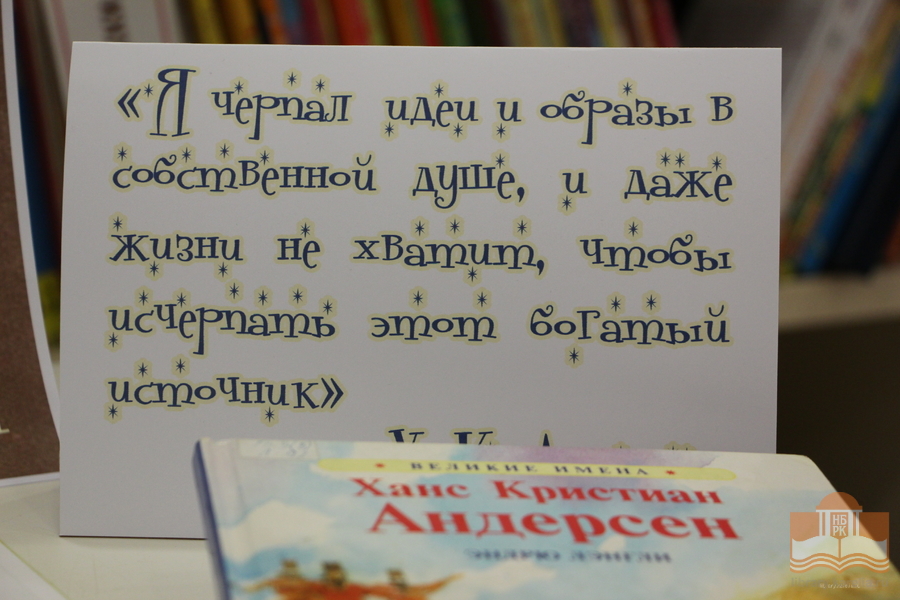 «Я черпал идеи и образы в
собственной душе, и даже
жизни не хватит, чтобы
исчерпать этот богатый
источник»
ВЕЛИКИЕ ИМЕНА
Ханс Кристиан
Андерсен
ЭНДРЮ ЛЭНГЛИ
НБ
РК